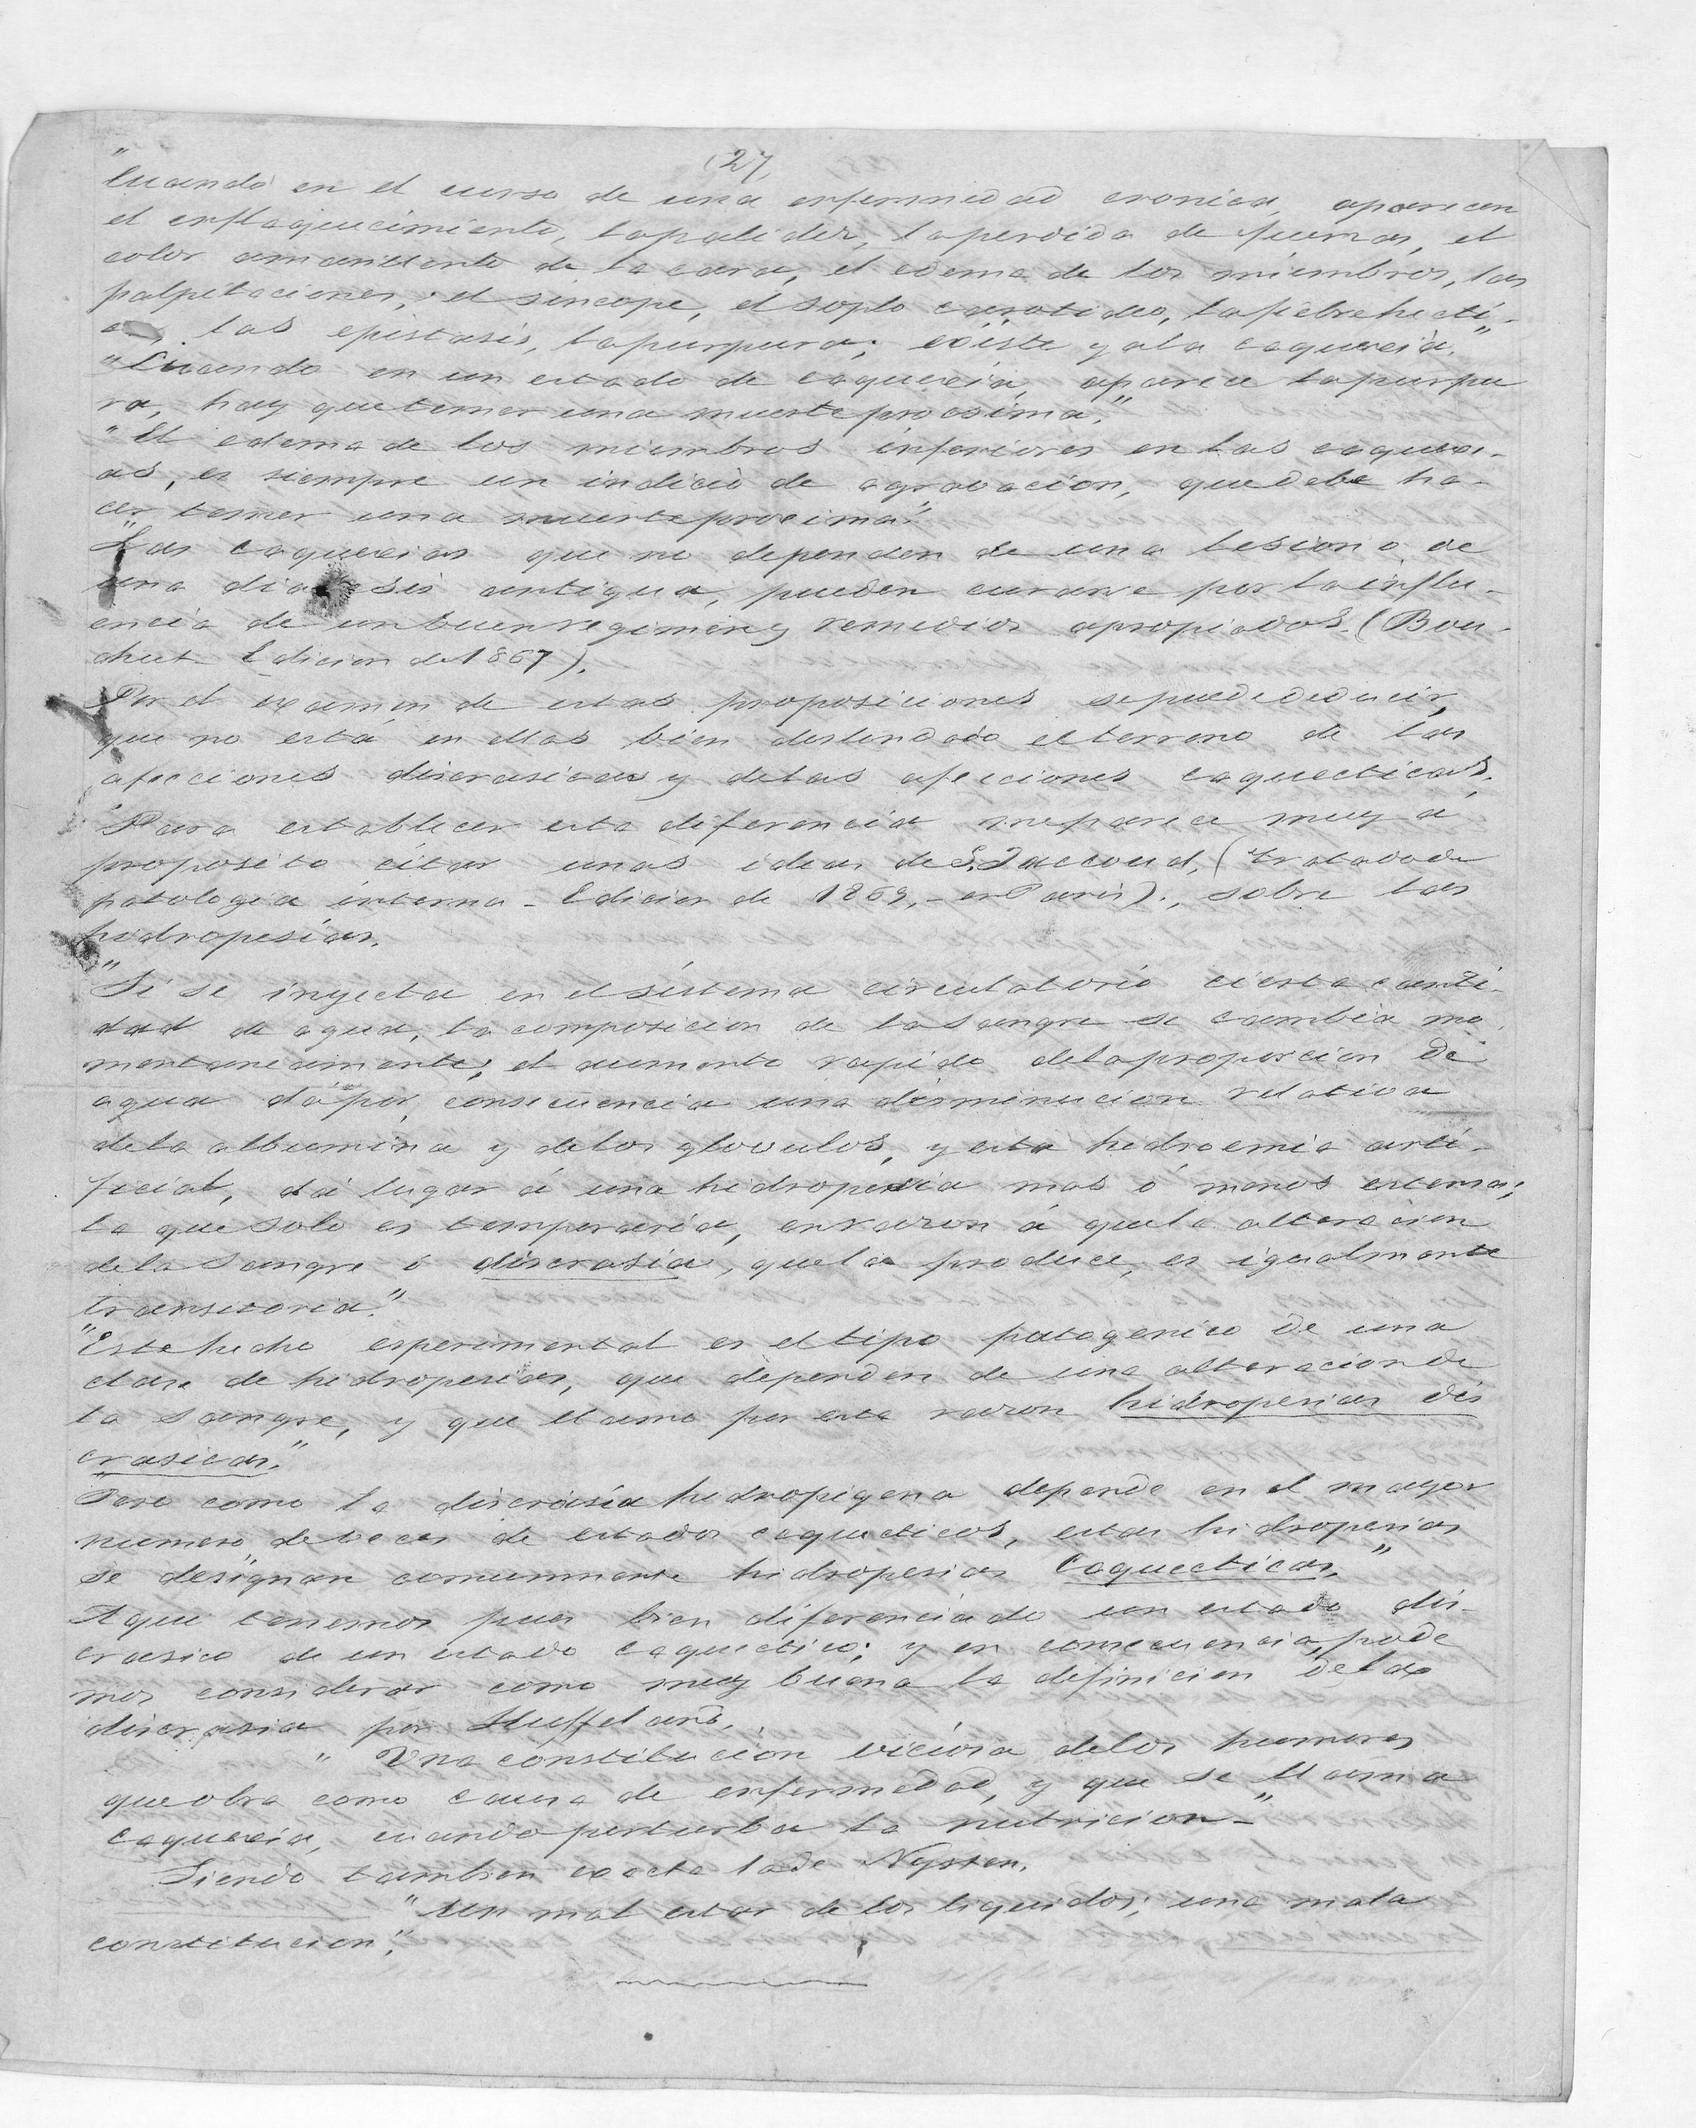 (27)
"Cuando en el curso de una enfermedad cronica, aparecen
el enflaquecimiento, la palidez, la perdida de fuerzas, el
color amarillento de la cara, el edema de los miembros, las
palpitaciones, el sincope, el soplo carotideo, la fiebre hecti-
ca, las epistasis, la purpura; existe ya la caquexia."
"Cuando en un estado de caquexia, aparece la purpu
ra, hay que temer una muerte procsima."
"El edema de los miembros inferiores en las caquexi-
as, es siempre un indicio de agravacion, que debe ha-
cer temer una muerte procima."
"Las caquexias que no dependen de una lesion o de
una diatesis antigua, pueden curarse por la influ-
encia de un buen regimen y remedios apropiados. (Bou-
chut Edicion de 1867).
Por el examen de estas proposiciones se puede deducir,
que no está en ellas bien deslindado el terreno de las
afecciones discrasicas y de las afecciones caquecticas.
Para establecer esta diferencia me parece muy á
proposito citar unas ideas de S. Jaccoud, (tratado de
patologia interna - Edicion de 1869, - en Paris)., sobre las
hidropesias.
"Si se inyecta en el sistema circulatorio cierta canti-
dad de agua, la composicion de la sangre se cambia mo
mentaneamente; el aumento rapido de la proporcion de
agua dá por consecuencia una disminucion relativa
de la albumina y de los glovulos, y esta hidroemia arti-
ficial, dá lugar á una hidropesia mas ó menos estensa;
la que solo es temporaria, en razon á que la alteracion
de la sangre ó discrasia, que la produce, es igualmente
transitoria."
"Este hecho esperimental es el tipo patogenico de una
clase de hidropesias, que dependen de una alteracion de
la sangre, y que llamo por esta razon hidropesias dis
crasicas."
"Pero como la discrasia hidropigena depende en el mayor
numero de veces de estados caquecticos, estas hidropesias
se designan comunmente hidropesias caquecticas."
Aqui tenemos pues bien diferenciado un estado dis-
crasico de un estado caquectico; y en consecuencia, pode
mos considerar como muy buena la definicion de la
discrasia por Huffeland.
" Una constitucion viciosa de los humores
que obra como causa de enfermedad, y que se llama
caquexia, cuando perturba la nutricion-"
Siendo tambien exacta la de Nysten.
"Un mal estar de los liquidos; una mala
constitucion".